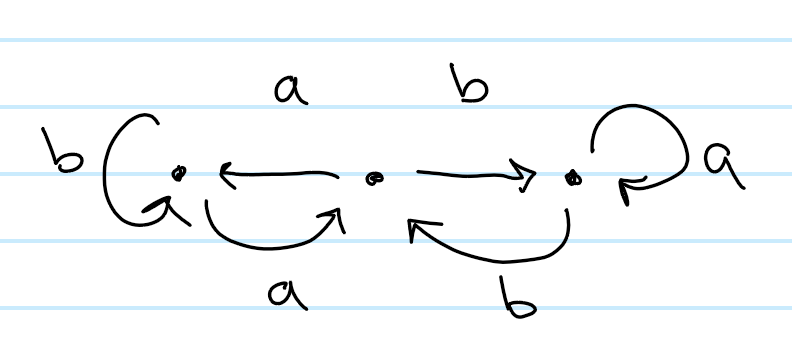 a b
b a
a b